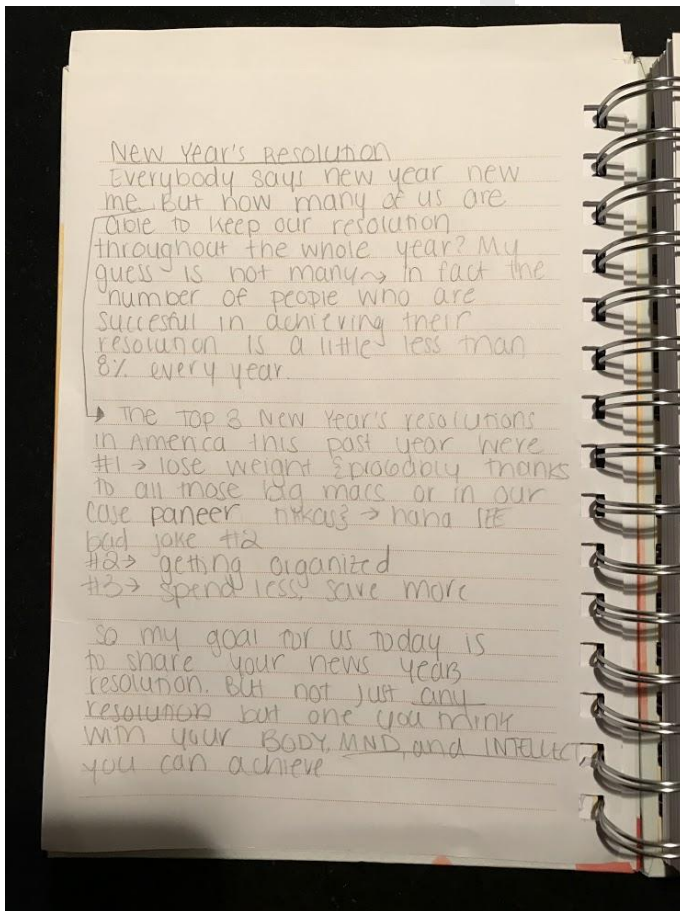 New Year's Resolution
Everybody says new year new
me. But how many of us are
able to keep our resolution
throughout the whole year? My
guess is not many In fact the
number of people who are
succesful in achieving their
resolution is a little less than
8% every year.
The Top 3 New Year's resolutions
in America this past year were
#1 → lose weight {probably thanks
to all those big macs or in our
case paneer tikkas} → haha
bad joke #2
#2 → getting organized
#3 → spend less, save more
So my goal for us today is
to share your news years
resolution. But not just any
resolution but one you think
with your BODY, MND, and INTELLECT,
you can achieve